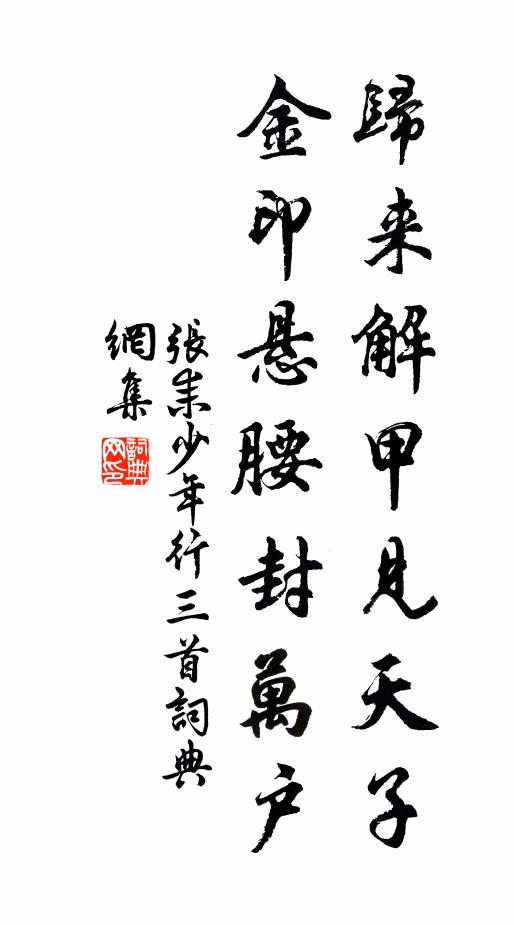 歸来解甲見天子
金印懸腰封萬户
張耒少年行三首詞典
網集
詞典
网印